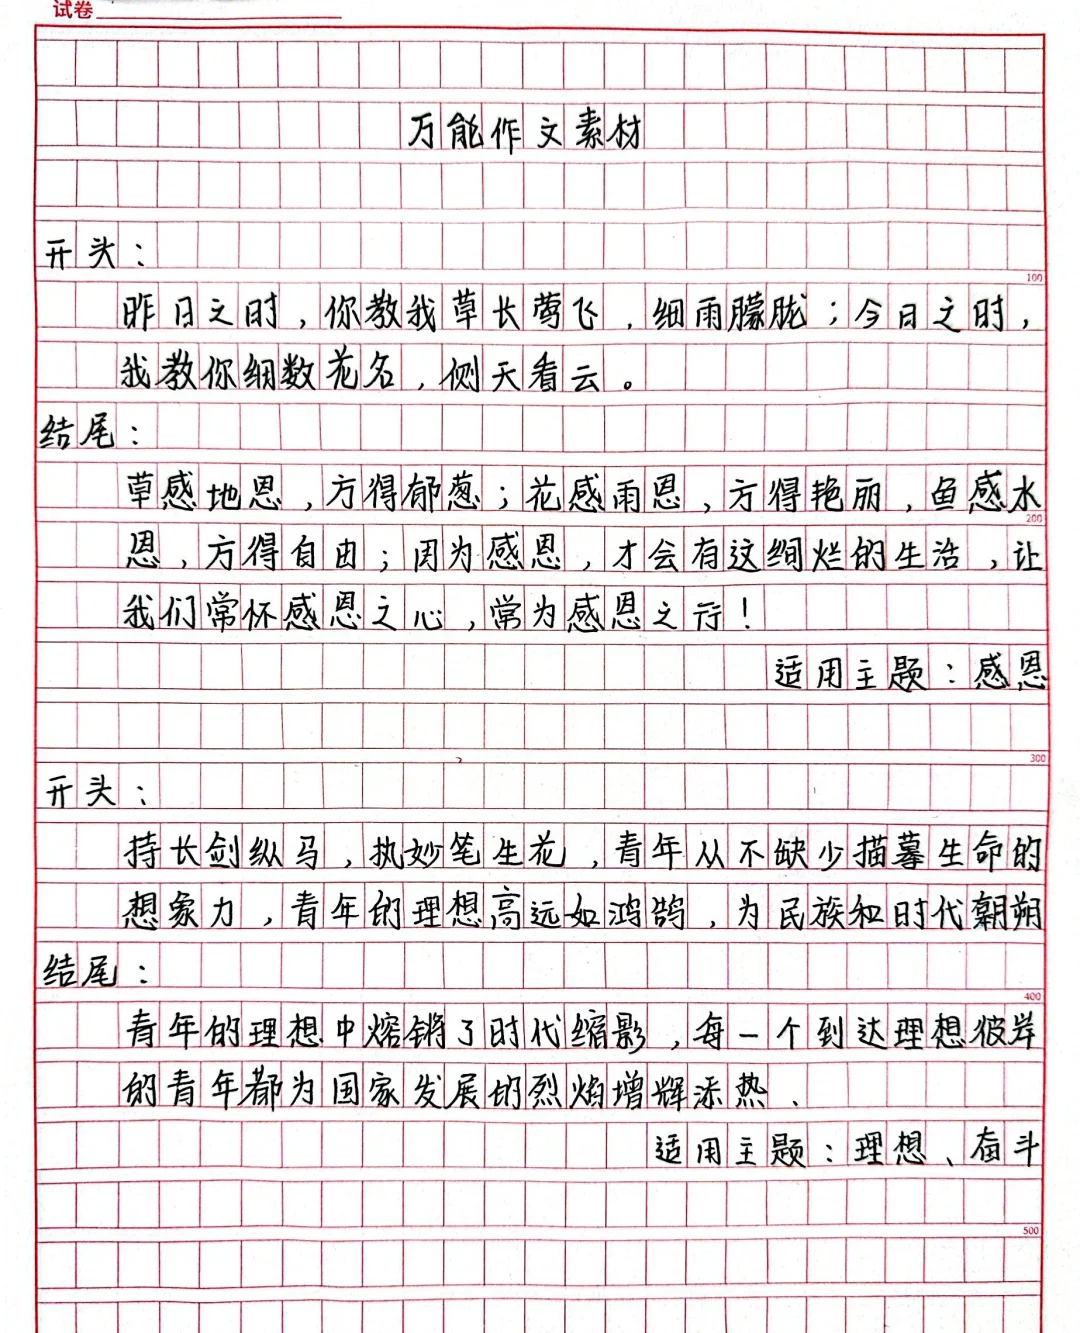 试卷
万能作文素材
开头：
100
昨日之时，你教我草长莺飞，细雨朦胧；今日之时，
我教你细数花名，侧天看云。
结尾：
草感地恩，方得郁葱；花感雨恩，方得艳丽，鱼感水
200
恩，方得自由；因为感恩，才会有这绚烂的生活，让
我们常怀感恩之心，常为感恩之行！
适用主题：感恩
300
开头：
持长剑纵马，执妙笔生花，青年从不缺少描摹生命的
想象力，青年的理想高远如鸿鹄，为民族和时代朝朔
结尾：
400
青年的理想中熔铸了时代缩影，每一个到达理想彼岸
的青年都为国家发展的烈焰增辉添热、
适用主题：理想、奋斗
500